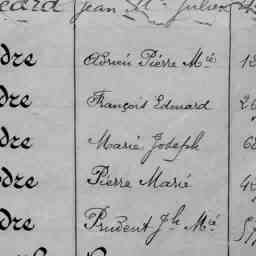 Jean Mie Julien
dre Adrien Pierre Mie
dre François Edouard
dre Marie Joseph
dre Pierre Marie
dre Prudent Jh Mie